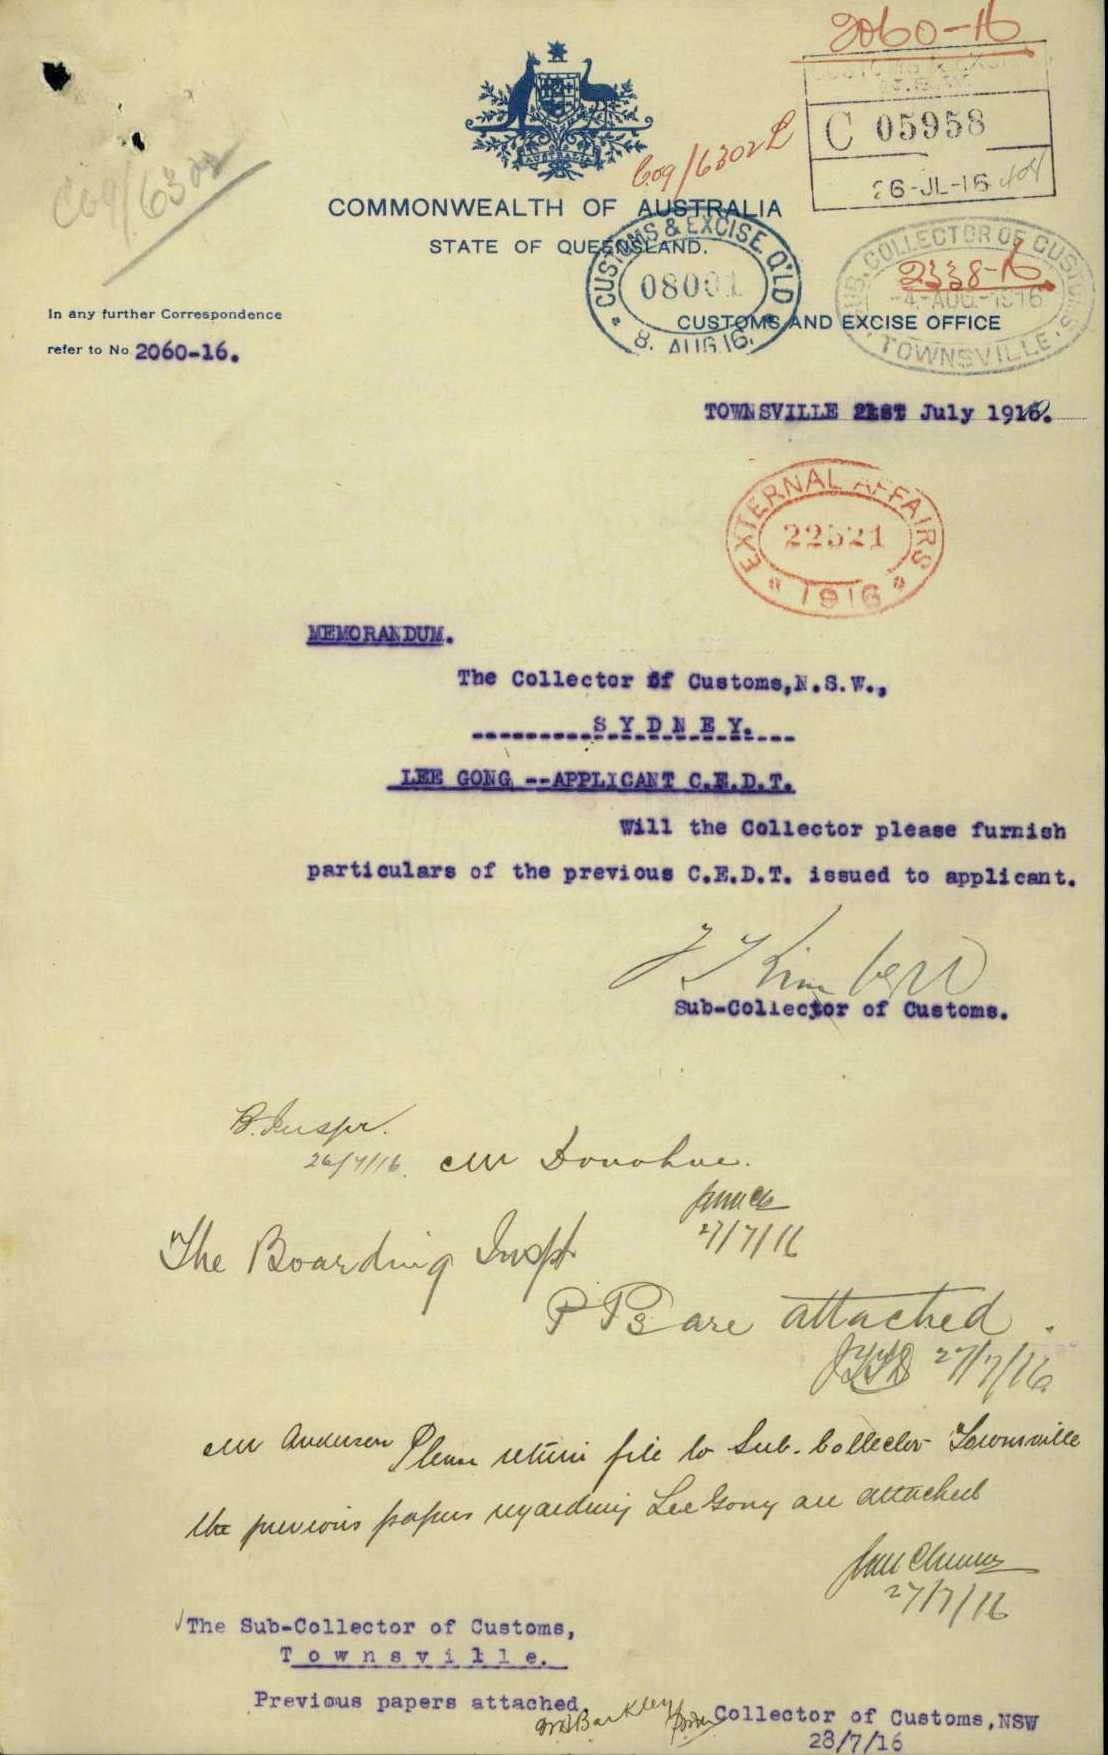 2060-16
C 05958
26-JL-16
C09/6302
C09/6302
AUSTRALIA
COMMONWEALTH OF AUSTRALIA
STATE OF QUEENSLAND.
CUSTOMS & EXCISE. Q'LD
08001
8. AUG. 16.
SUB. COLLECTOR OF CUSTOMS
2338-16
-4.-AUG.-1916
TOWNSVILLE
CUSTOMS AND EXCISE OFFICE
In any further Correspondence
refer to No 2060-16.
TOWNSVILLE 21st July 1916.
EXTERNAL AFFAIRS
22521
1916
MEMORANDUM.
The Collector of Customs,N.S.W.,
SYDNEY.
LEE GONG --APPLICANT C.E.D.T.
Will the Collector please furnish
particulars of the previous C.E.D.T. issued to applicant.
Sub-Collector of Customs.
B. Inspr.
26/7/16. Mr Donohue.
27/7/16
The Boarding Inspt
P Ps are attached.
27/7/16
Mr Anderson Please return file to Sub. Collector Townsville
the previous papers regarding Lee Gong are attached
27/7/16
The Sub-Collector of Customs,
Townsville.
Previous papers attached.
Barkley
Collector of Customs,NSW
28/7/16